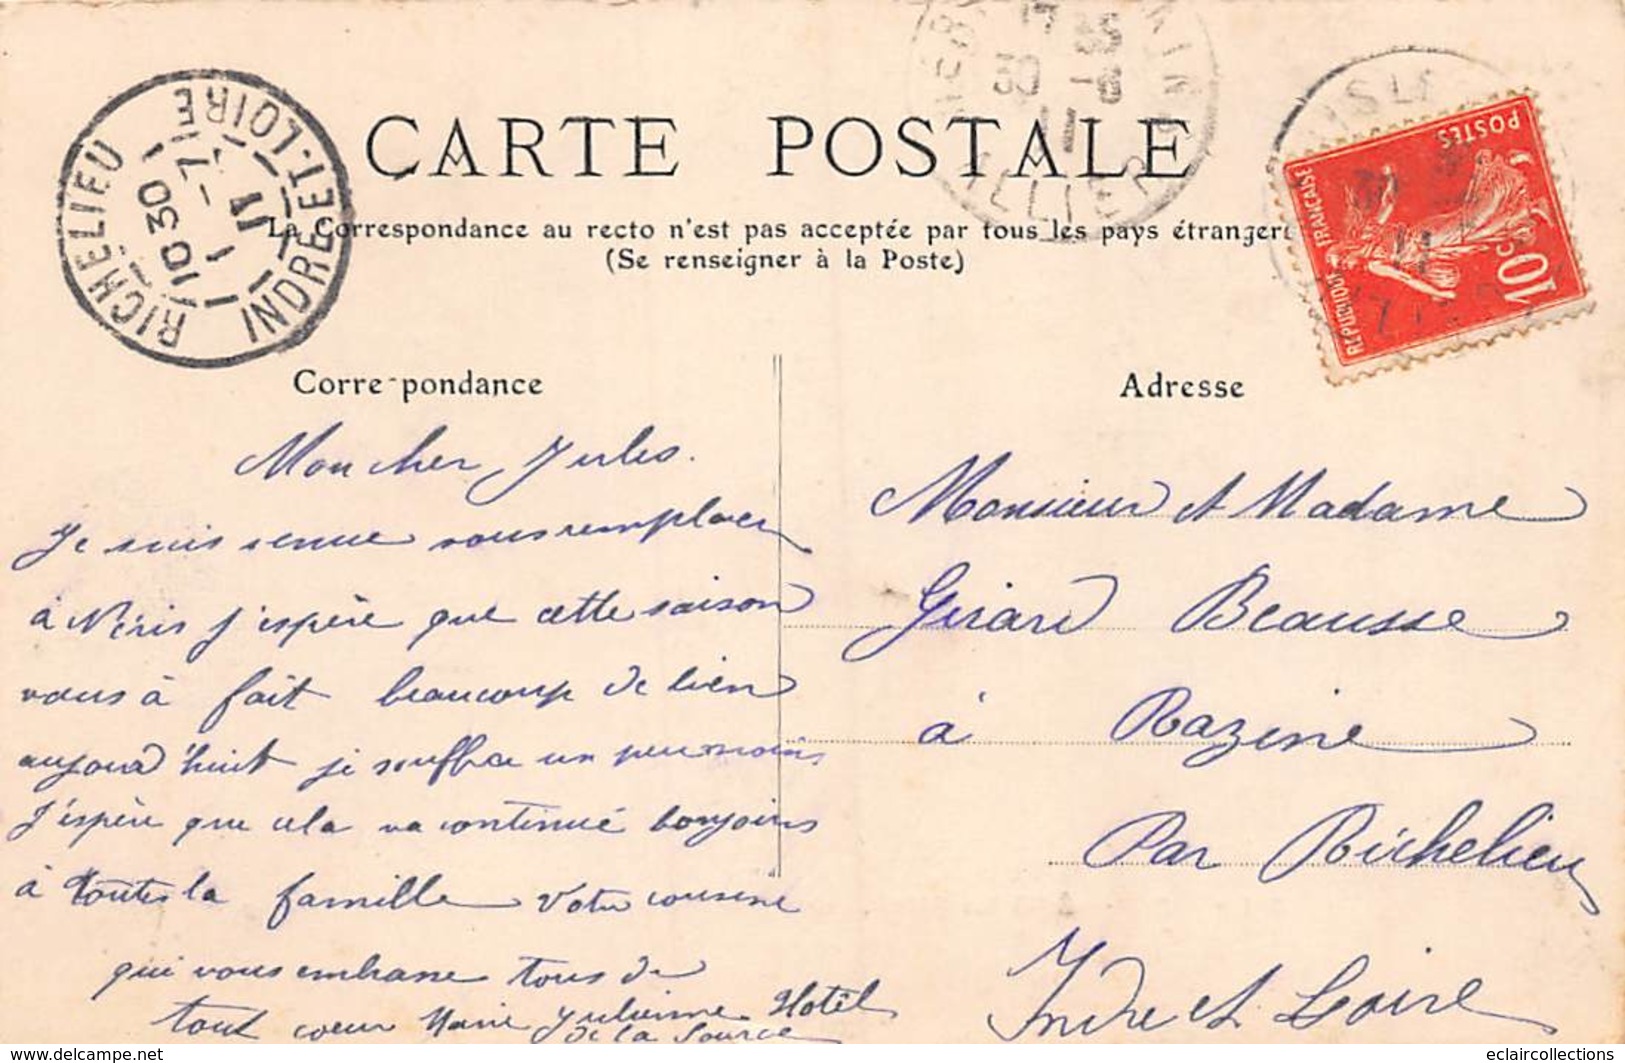 CARTE POSTALE
La Correspondance au recto n'est pas acceptée par tous les pays étrangers
(Se renseigner à la Poste)
RICHELIEU
10 30
1 -7
11
INDRE-ET-LOIRE
REPUBLIQUE FRANÇAISE
POSTES
10c
Corre-pondance
Mon cher Jules.
Je suis venue vous remplacer
à Néris J'espère que cette saison
vous à fait beaucoup de bien
aujourd'huit je souffre un peu moins
J'espère que cela va continué bonjours
à toutes la famille Votre cousine
qui vous embrasse tous de
tout coeur Marie Julienne Hotêl
de la Source
Adresse
Monsieur et Madame
Girard Beausse
à Razine
Par Richelieu
Indre et Loire
eclaircollections